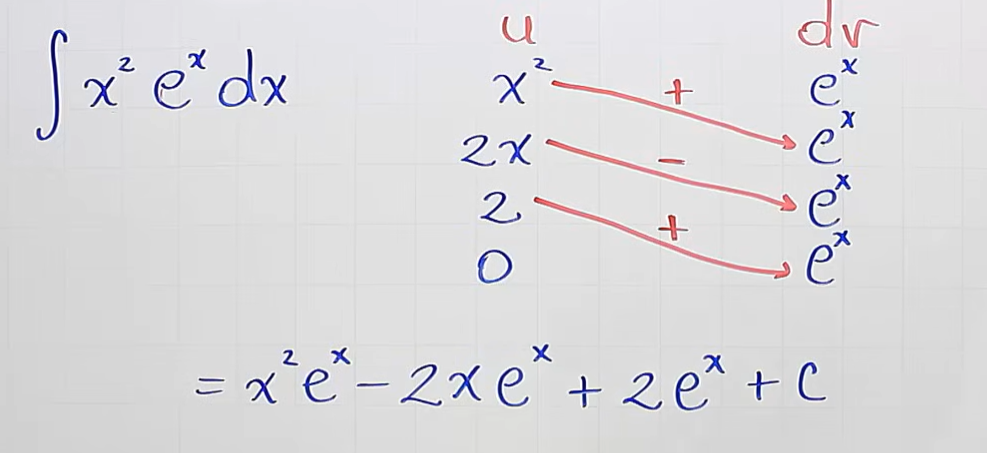 ∫ x² eˣ dx
u dv
x² + eˣ
2x − eˣ
2 + eˣ
0 eˣ
= x²eˣ − 2x eˣ + 2eˣ + c